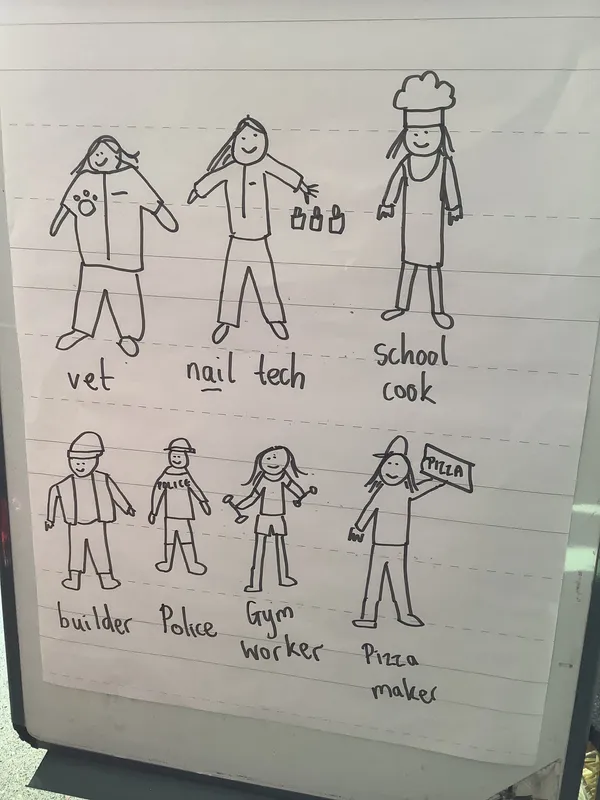 vet
nail tech
school
cook
POLICE
PIZZA
builder
Police
Gym
worker
Pizza
maker